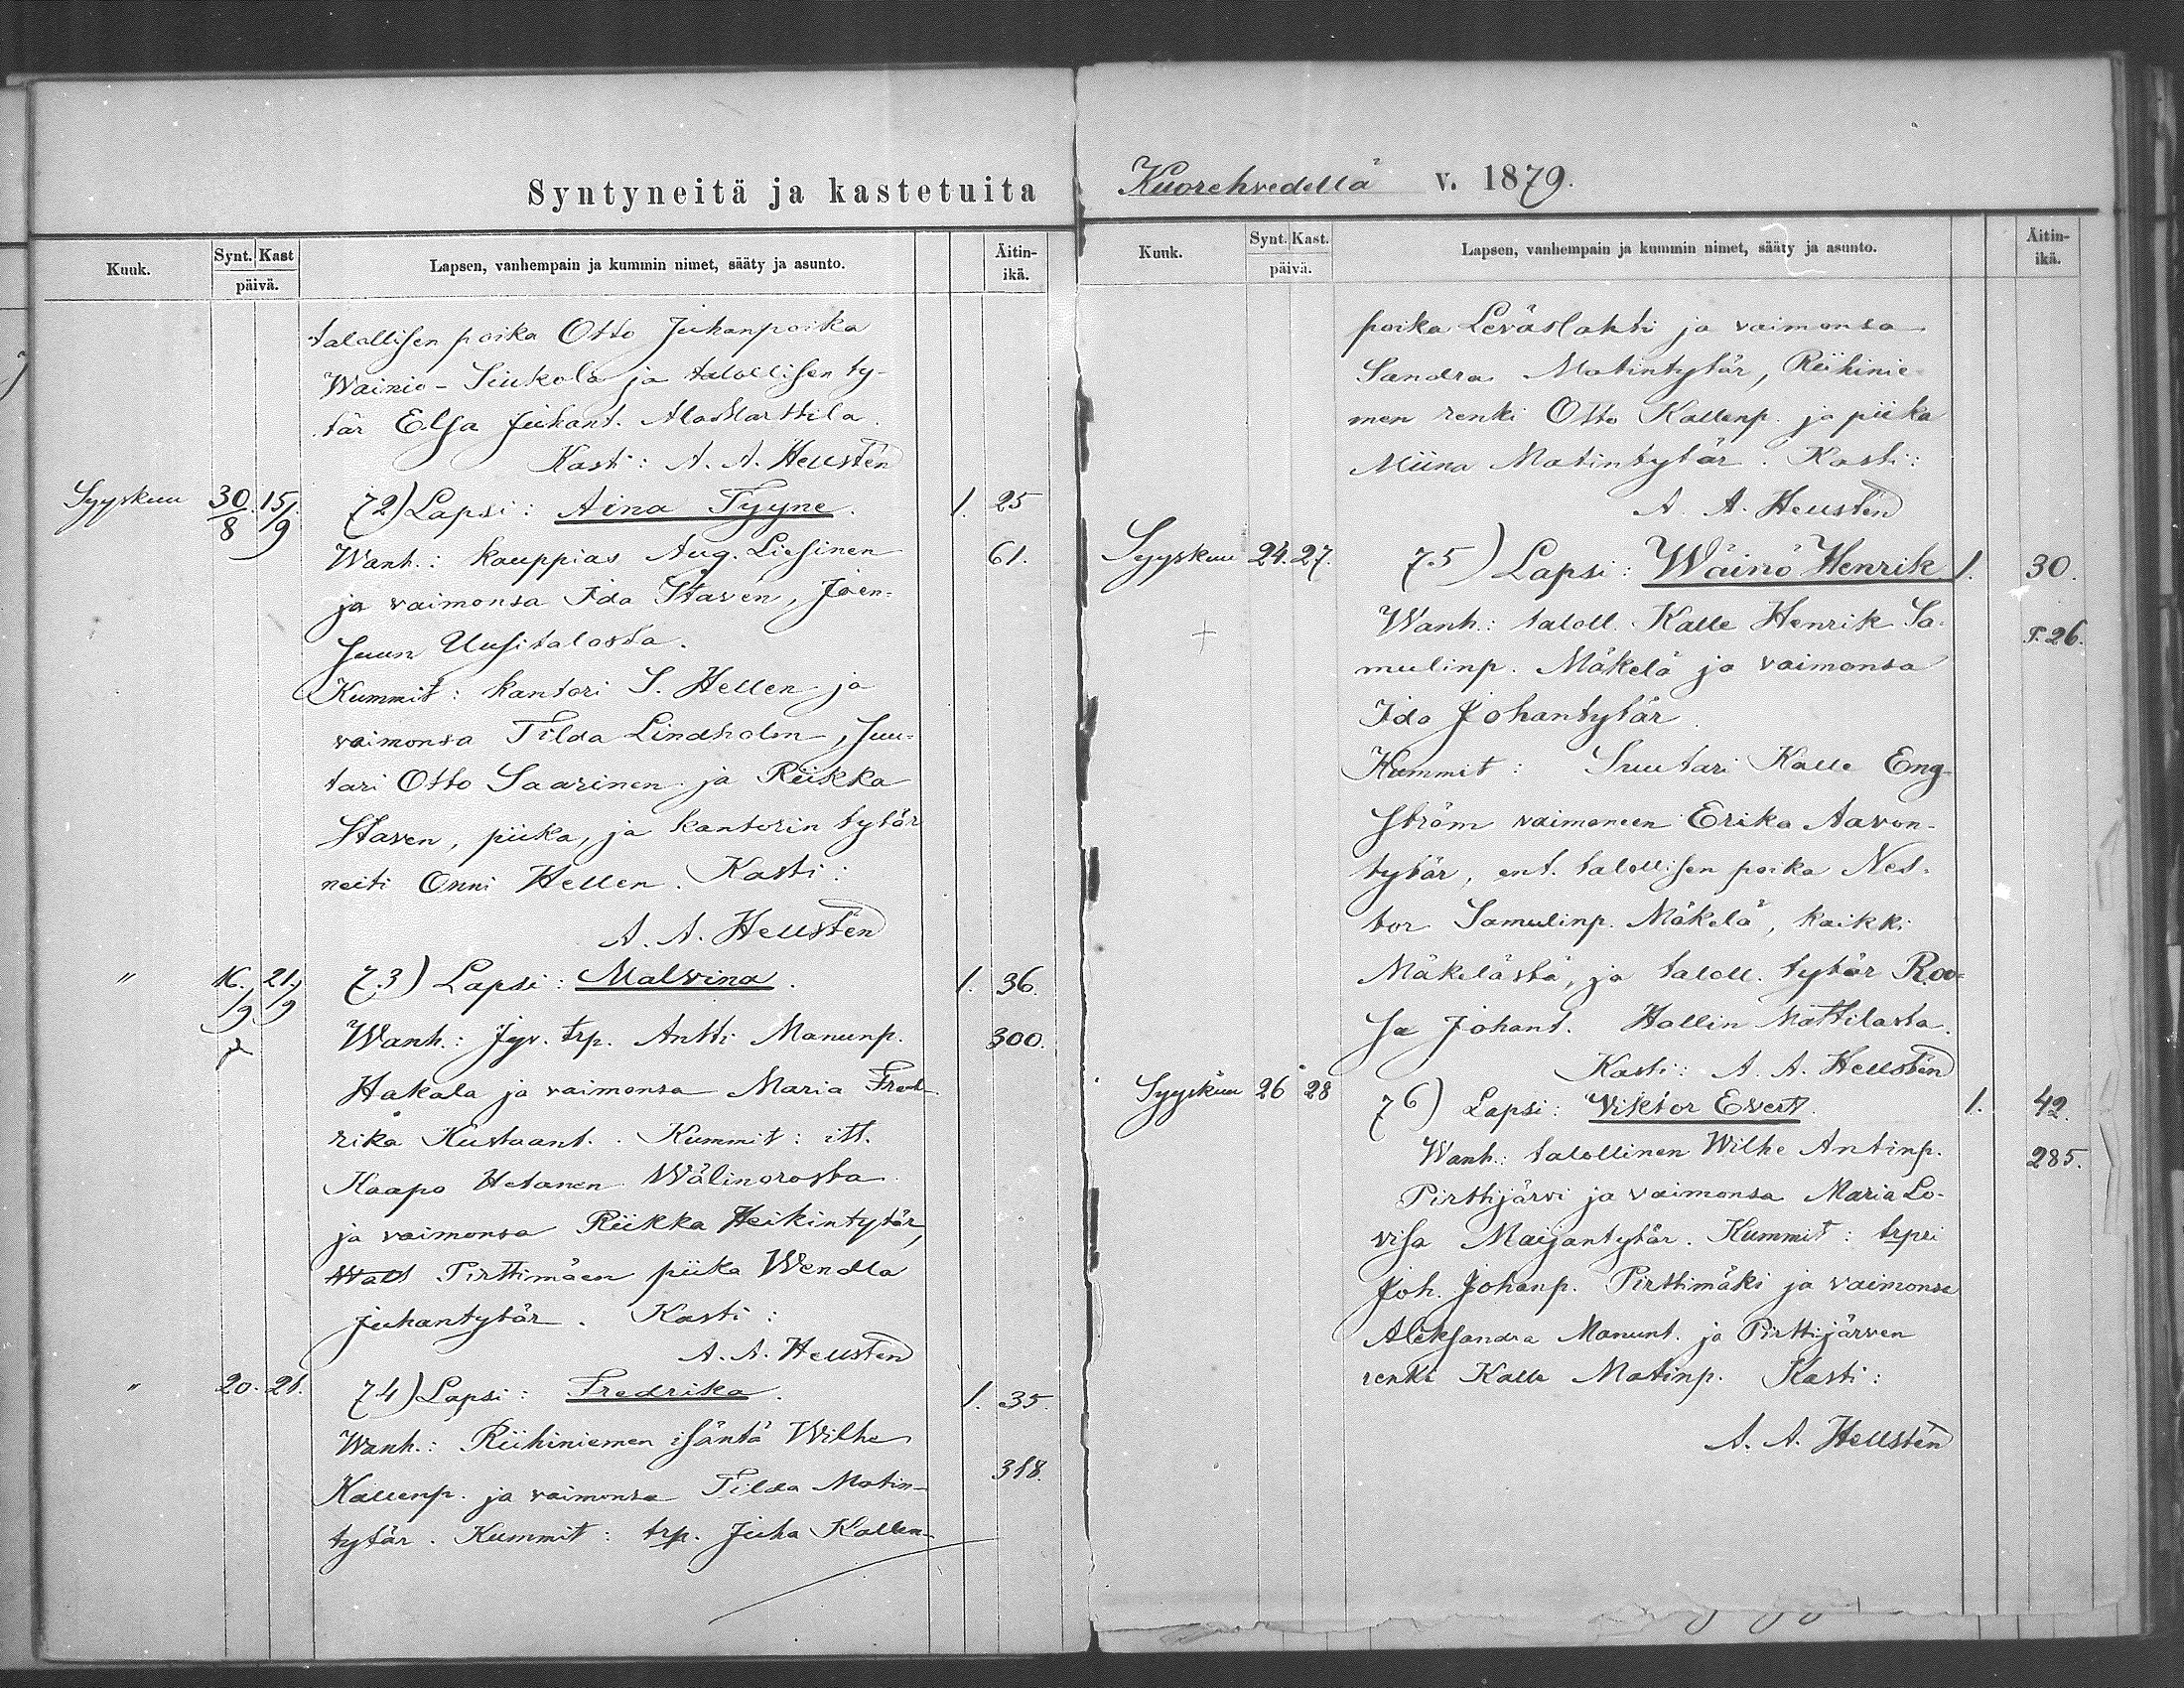 Syntyneitä ja kastetuita
Kuuk. Synt. Kast päivä. Lapsen, vanhempain ja kummin nimet, sääty ja asunto. Äitin-ikä.
talollisen poika Otto Juhanpoika
Wainio-Siukola ja talollisen ty-
tär Elsa Juhant. AlaMarttila.
Kasti: A. A. Hellstén
Syyskuu 30/8 15/9 72) Lapsi: Aina Tyyne. 1. 25
Wanh.: kauppias Aug. Liesinen 61.
ja vaimonsa Ida Staven, Joen-
suun Uusitalosta.
Kummit: kantori S. Hellen ja
vaimonsa Tilda Lindholm, suu-
tari Otto Saarinen ja Riikka
Staven, piika, ja kantorin tytär
neiti Onni Hellen. Kasti:
A. A. Hellstén
" 16./9 21./9 73) Lapsi: Malvina. 1. 36.
Wanh.: Jyv. trp. Antti Manunp. 300.
Hakala ja vaimonsa Maria Fred-
rika Kustaant. Kummit: itt.
Kaapo Hetanen Wälinorosta
ja vaimonsa Riikka Heikintytär,
Pirttimäen piika Wendla
Juhantytär. Kasti:
A. A. Hellstén
" 20. 21. 74) Lapsi: Fredrika. 1. 35.
Wanh.: Riihiniemen isäntä Wilhe
Kallenp. ja vaimonsa Tilda Matin- 318.
tytär. Kummit: trp. Juha Kallen-
Kuorehvedellä v. 1879.
Kuuk. Synt. Kast. päivä. Lapsen, vanhempain ja kummin nimet, sääty ja asunto. Äitin-ikä.
poika Leväslahti ja vaimonsa
Sandra Matintytär, Riihinie
men renki Otto Kallenp. ja piika
Miina Matintytär. Kasti:
A. A. Hellstén
Syyskuu 24. 27. 75) Lapsi: Wäinö Henrik 1. 30.
Wanh.: taloll. Kalle Henrik Sa- 26.
mulinp. Mäkelä ja vaimonsa
Ida Johantytär.
Kummit: Suutari Kalle Eng-
ström vaimoneen Erika Aavon-
tytär, ent. talollisen poika Nes-
tor Samulinp. Mäkelä, kaikki
Mäkelästä, ja taloll. tytär Roo-
sa Johant. Hallin Mattilasta.
Kasti: A. A. Hellstén
Syyskuu 26 28 76) Lapsi: Viktor Evert. 1. 42.
Wanh.: talollinen Wilhe Antinp. 285.
Pirttijärvi ja vaimonsa Maria Lo-
visa Maijantytär. Kummit: trpri
Joh. Johanp. Pirttimäki ja vaimonsa
Aleksandra Manunt. ja Pirttijärven
renki Kalle Matinp. Kasti:
A. A. Hellstén